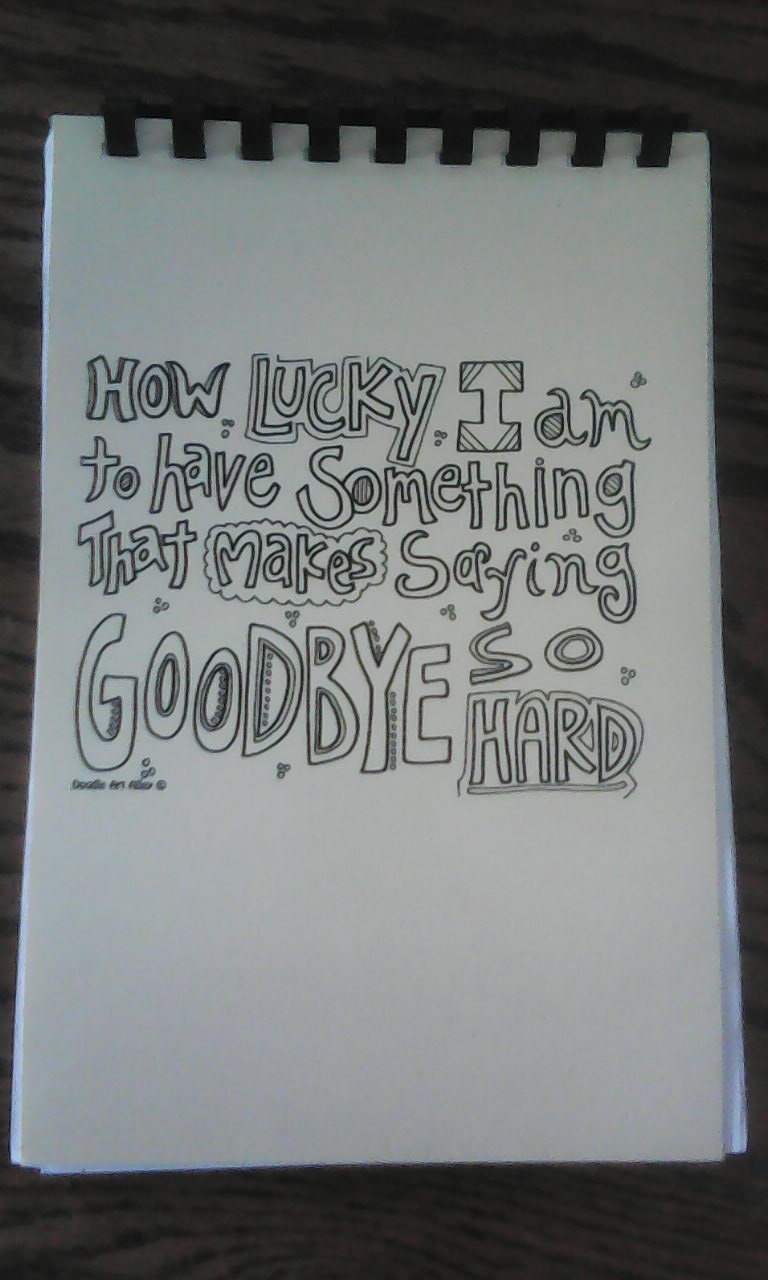 How LUCKY I am
to have Something
That makes Saying
GOODBYE SO
HARD
Doodle Art Alley ©